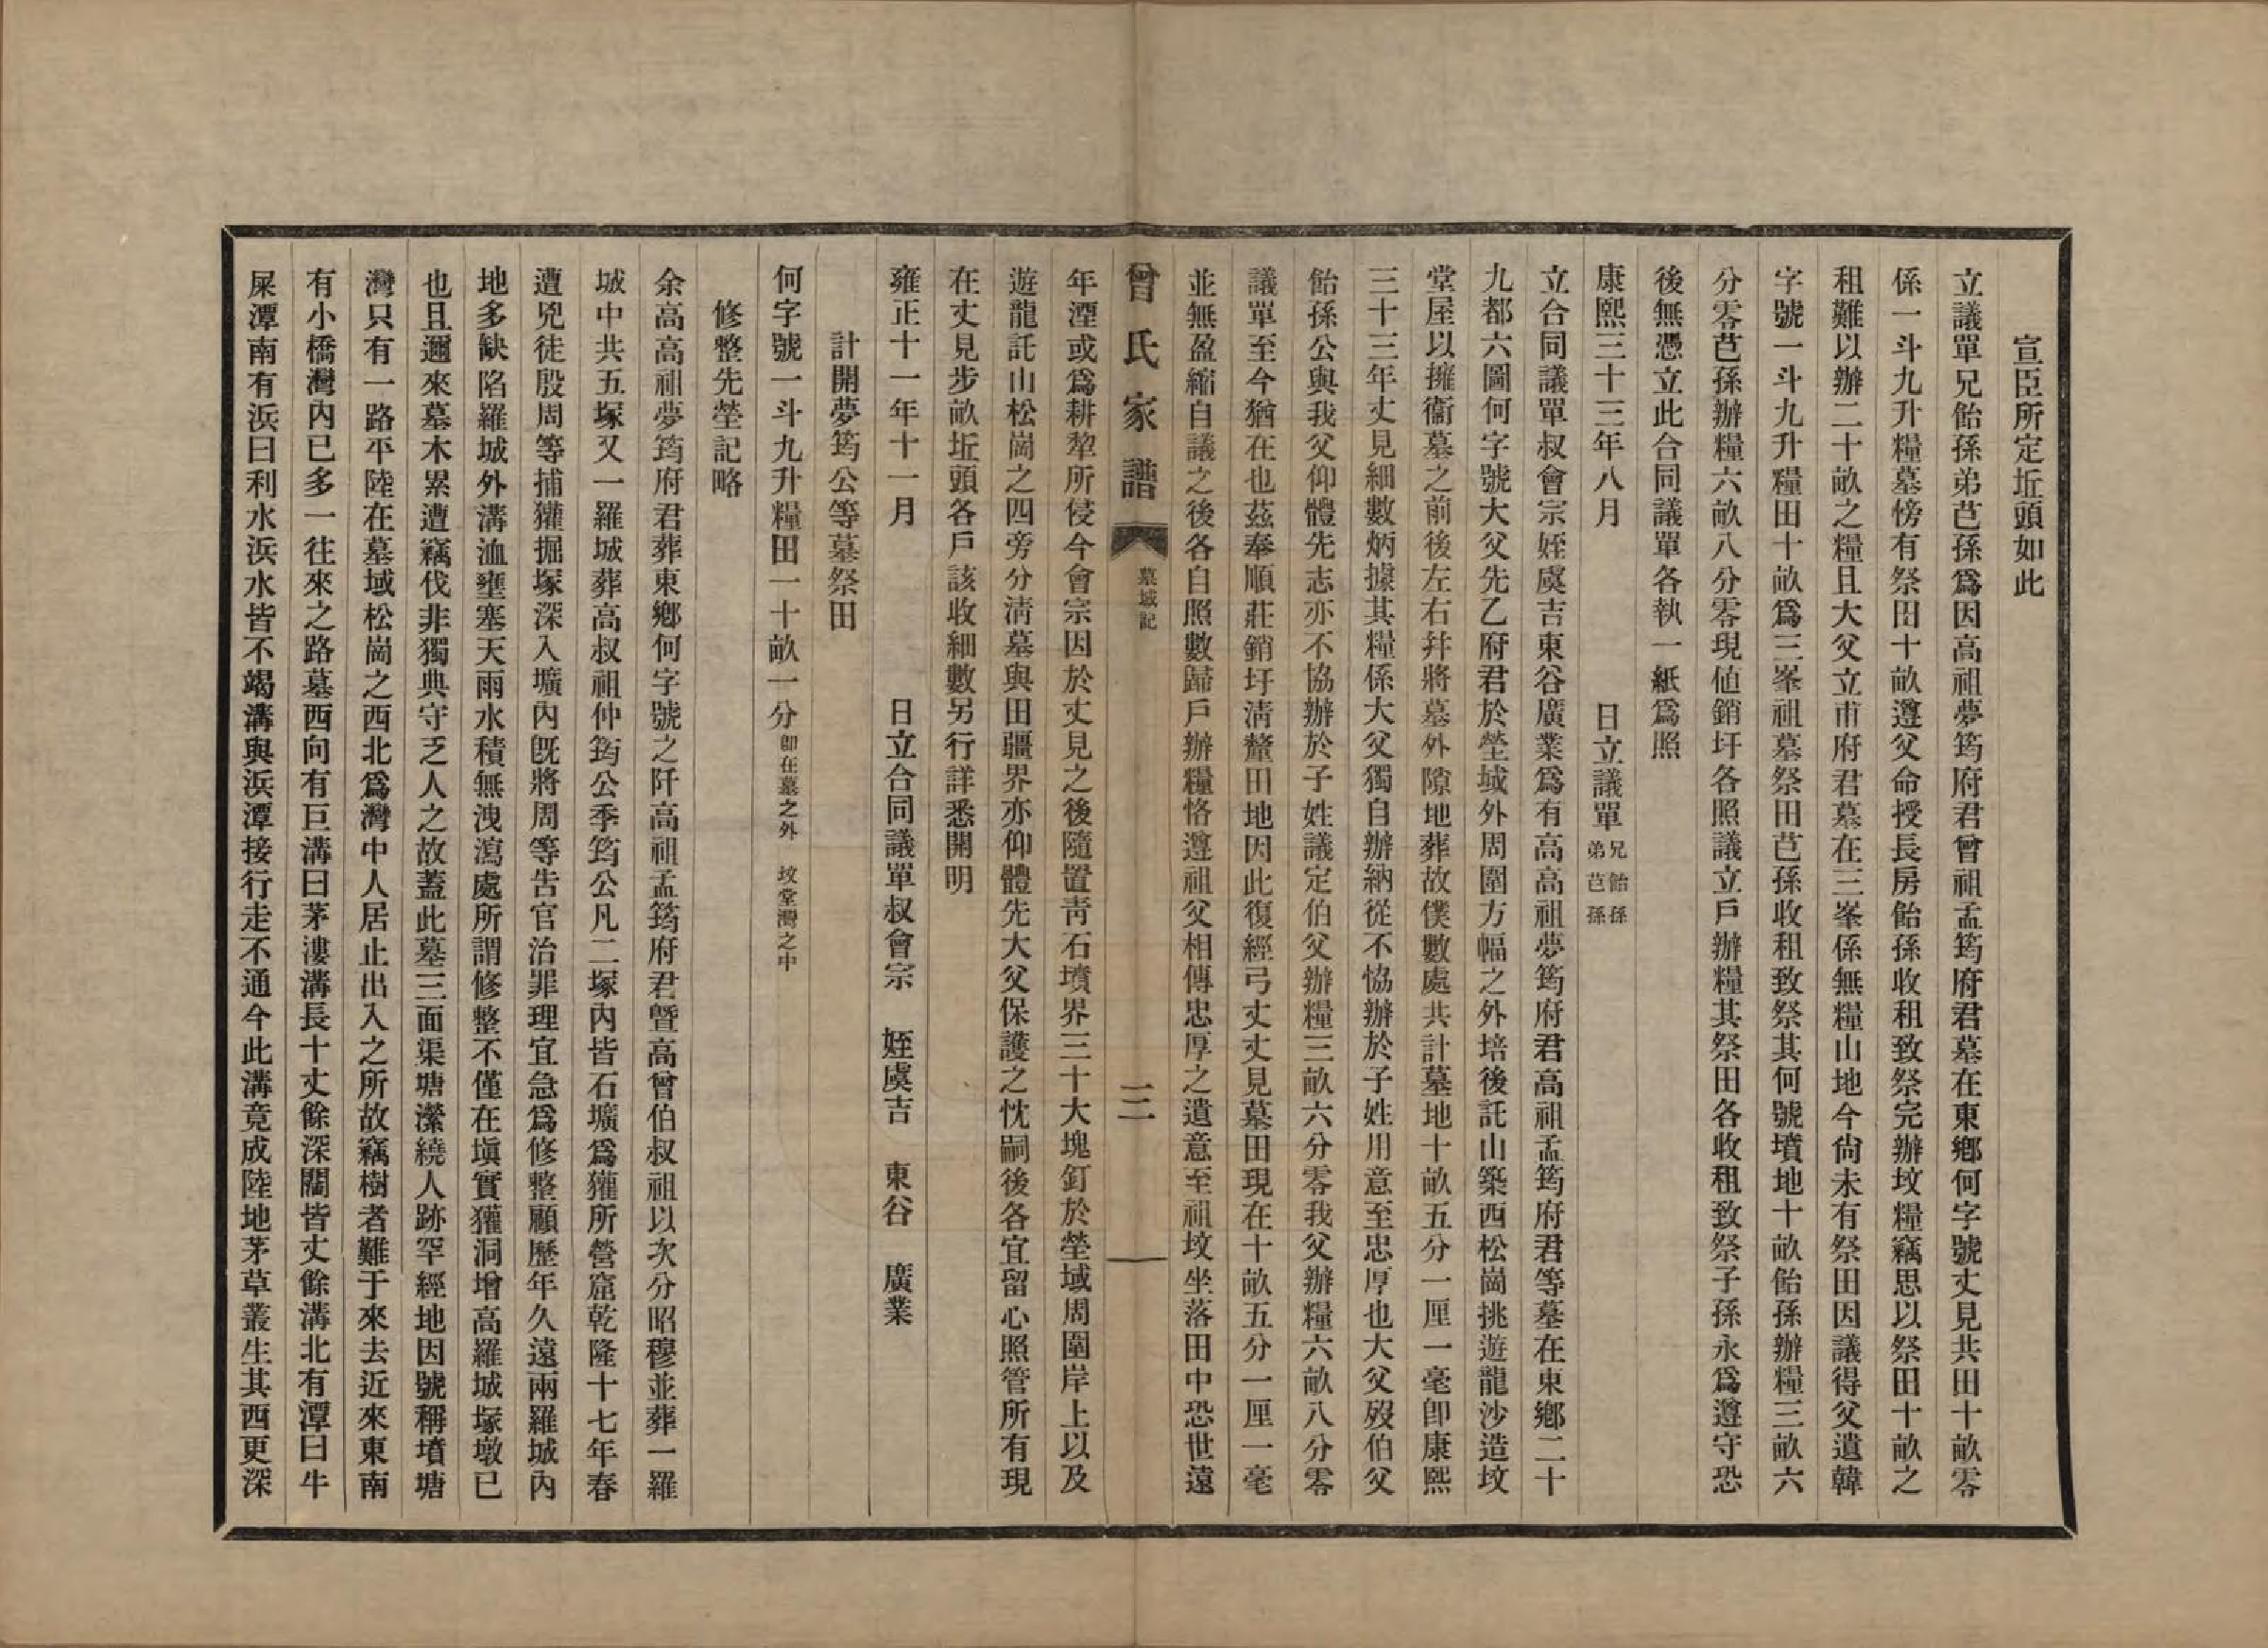 宣臣所定坵頭如此
立議單兄飴孫弟芑孫爲因高祖夢筠府君曾祖孟筠府君墓在東鄉何字號丈見共田十畝零
係一斗九升糧墓傍有祭田十畝遵父命授長房飴孫收租致祭完辦坟糧竊思以祭田十畝之
租難以辦二十畝之糧且大父立甫府君墓在三峯係無糧山地今尙未有祭田因議得父遺韓
字號一斗九升糧田十畝爲三峯祖墓祭田芑孫收租致祭其何號墳地十畝飴孫辦糧三畝六
分零芑孫辦糧六畝八分零現値銷圩各照議立戶辦糧其祭田各收租致祭子孫永爲遵守恐
後無憑立此合同議單各執一紙爲照
康熙三十三年八月　　　　　日立議單 兄飴孫 弟芑孫
立合同議單叔會宗姪虞吉東谷廣業爲有高高祖夢筠府君高祖孟筠府君等墓在東鄉二十
九都六圖何字號大父先乙府君於塋域外周圍方幅之外培後託山築西松崗挑遊龍沙造坟
堂屋以擁衞墓之前後左右幷將墓外隙地葬故僕數處共計墓地十畝五分一厘一毫卽康熙
三十三年丈見細數炳據其糧係大父獨自辦納從不恊辦於子姓用意至忠厚也大父歿伯父
飴孫公與我父仰體先志亦不協辦於子姓議定伯父辦糧三畝六分零我父辦糧六畝八分零
議單至今猶在也茲奉順莊銷圩淸釐田地因此復經弓丈丈見墓田現在十畝五分一厘一毫
並無盈縮自議之後各自照數歸戶辦糧恪遵祖父相傳忠厚之遺意至祖坟坐落田中恐世遠
曾氏家譜　墓域記　三
年湮或爲耕犂所侵今會宗因於丈見之後隨置靑石墳界三十大塊釘於塋域周圍岸上以及
遊龍託山松崗之四旁分淸墓與田疆界亦仰體先大父保護之忱嗣後各宜留心照管所有現
在丈見步畝坵頭各戶該收細數另行詳悉開明
雍正十一年十一月　　　　　日立合同議單叔會宗　姪虞吉　東谷　廣業
計開夢筠公等墓祭田
何字號一斗九升糧田一十畝一分 卽在墓之外　坟堂灣之中
修整先塋記略
余高高祖夢筠府君葬東鄉何字號之阡高祖孟筠府君曁高曾伯叔祖以次分昭穆並葬一羅
城中共五塚又一羅城葬高叔祖仲筠公季筠公凡二塚內皆石壙爲獾所營窟乾隆十七年春
遭兇徒殷周等捕獾掘塚深入壙內旣將周等吿官治罪理宜急爲修整顧歷年久遠兩羅城內
地多缺陷羅城外溝洫壅塞天雨水積無洩瀉處所謂修整不僅在塡實獾洞增高羅城塚墩已
也且邇來墓木累遭竊伐非獨典守乏人之故蓋此墓三面渠塘瀠繞人跡罕經地因號稱墳塘
灣只有一路平陸在墓域松崗之西北爲灣中人居止出入之所故竊樹者難于來去近來東南
有小橋灣內已多一往來之路墓西向有巨溝曰茅漊溝長十丈餘深闊皆丈餘溝北有潭曰牛
屎潭南有浜曰利水浜水皆不竭溝與浜潭接行走不通今此溝竟成陸地茅草叢生其西更深